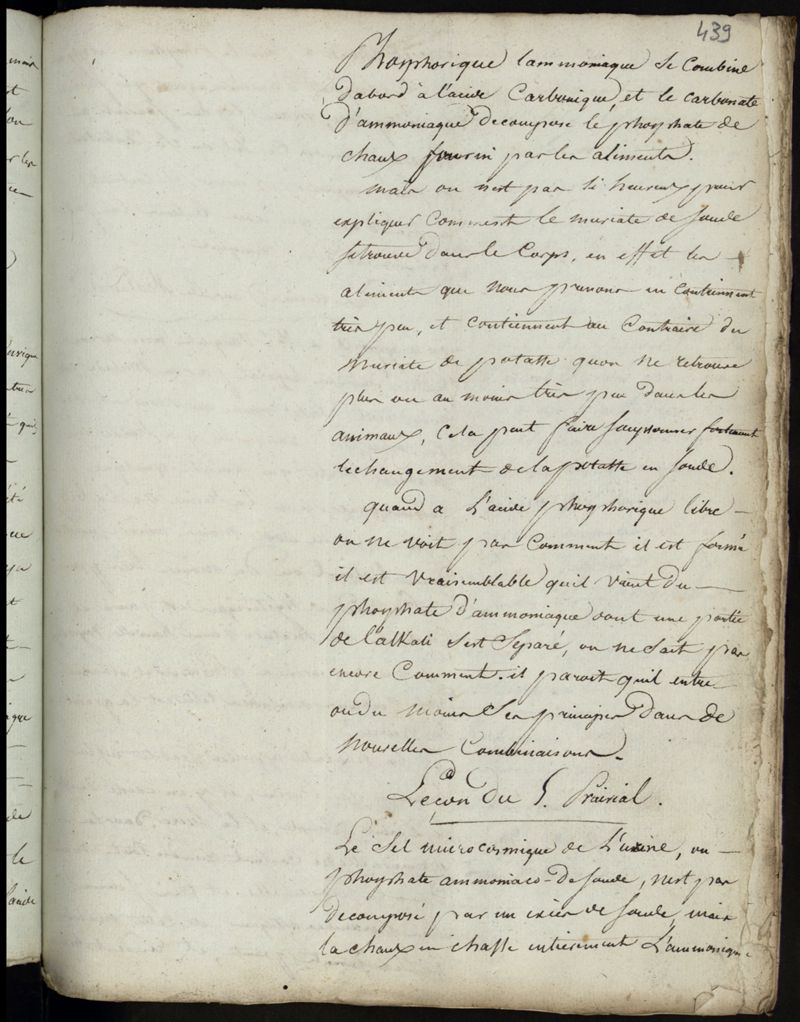 439
Phosphorique lammoniaque se combine
d'abord à l'acide Carbonique, et le carbonate
d'ammoniaque decompose le phosphate de
chaux fourni par les aliments.
mais on n'est pas si heureux pour
expliquer comment le muriate de soude
se trouve dans le Corps, en effet les
aliments que nous prenons en contiennent
très peu, et contiennent au contraire du
muriate de potasse quon ne retrouve
plus ou au moins très peu dans les
animaux, Cela peut faire soupçonner fortement
le changement de la potasse en soude.
quand a L'acide phosphorique libre
on ne voit pas Comment il est formé
il est vraisemblable quil vient du
phosphate d'ammoniaque dont une partie
de l'alkali s'est séparé, on ne sait pas
encore Comment. il paroit quil entre
ou du moins ses principes dans de
nouvelles Combinaisons.
Leçon du 5. Prairial.
Le sel microcosmique de L'urine, ou
phosphate ammoniaco-de soude, n'est pas
decomposé par un excès de soude, mais
la chaux en chasse entierement L'ammoniaque